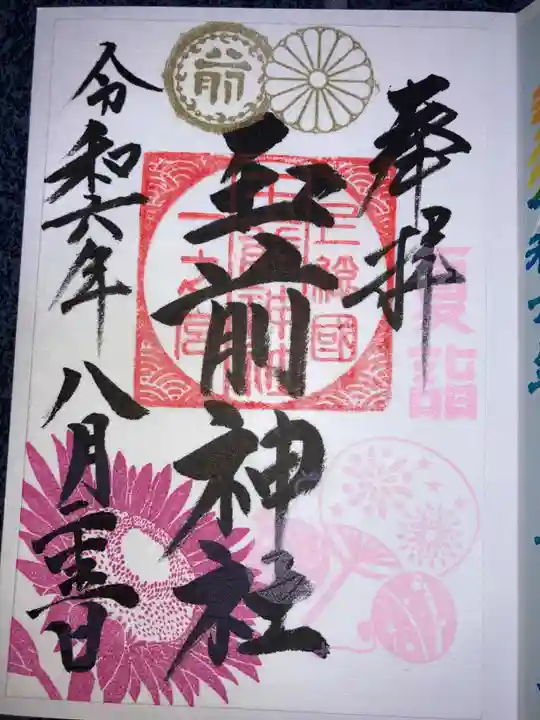 奉拝
夏詣
玉前神社
上総國
一之宮
玉前神社
前
令和六年八月二十五日